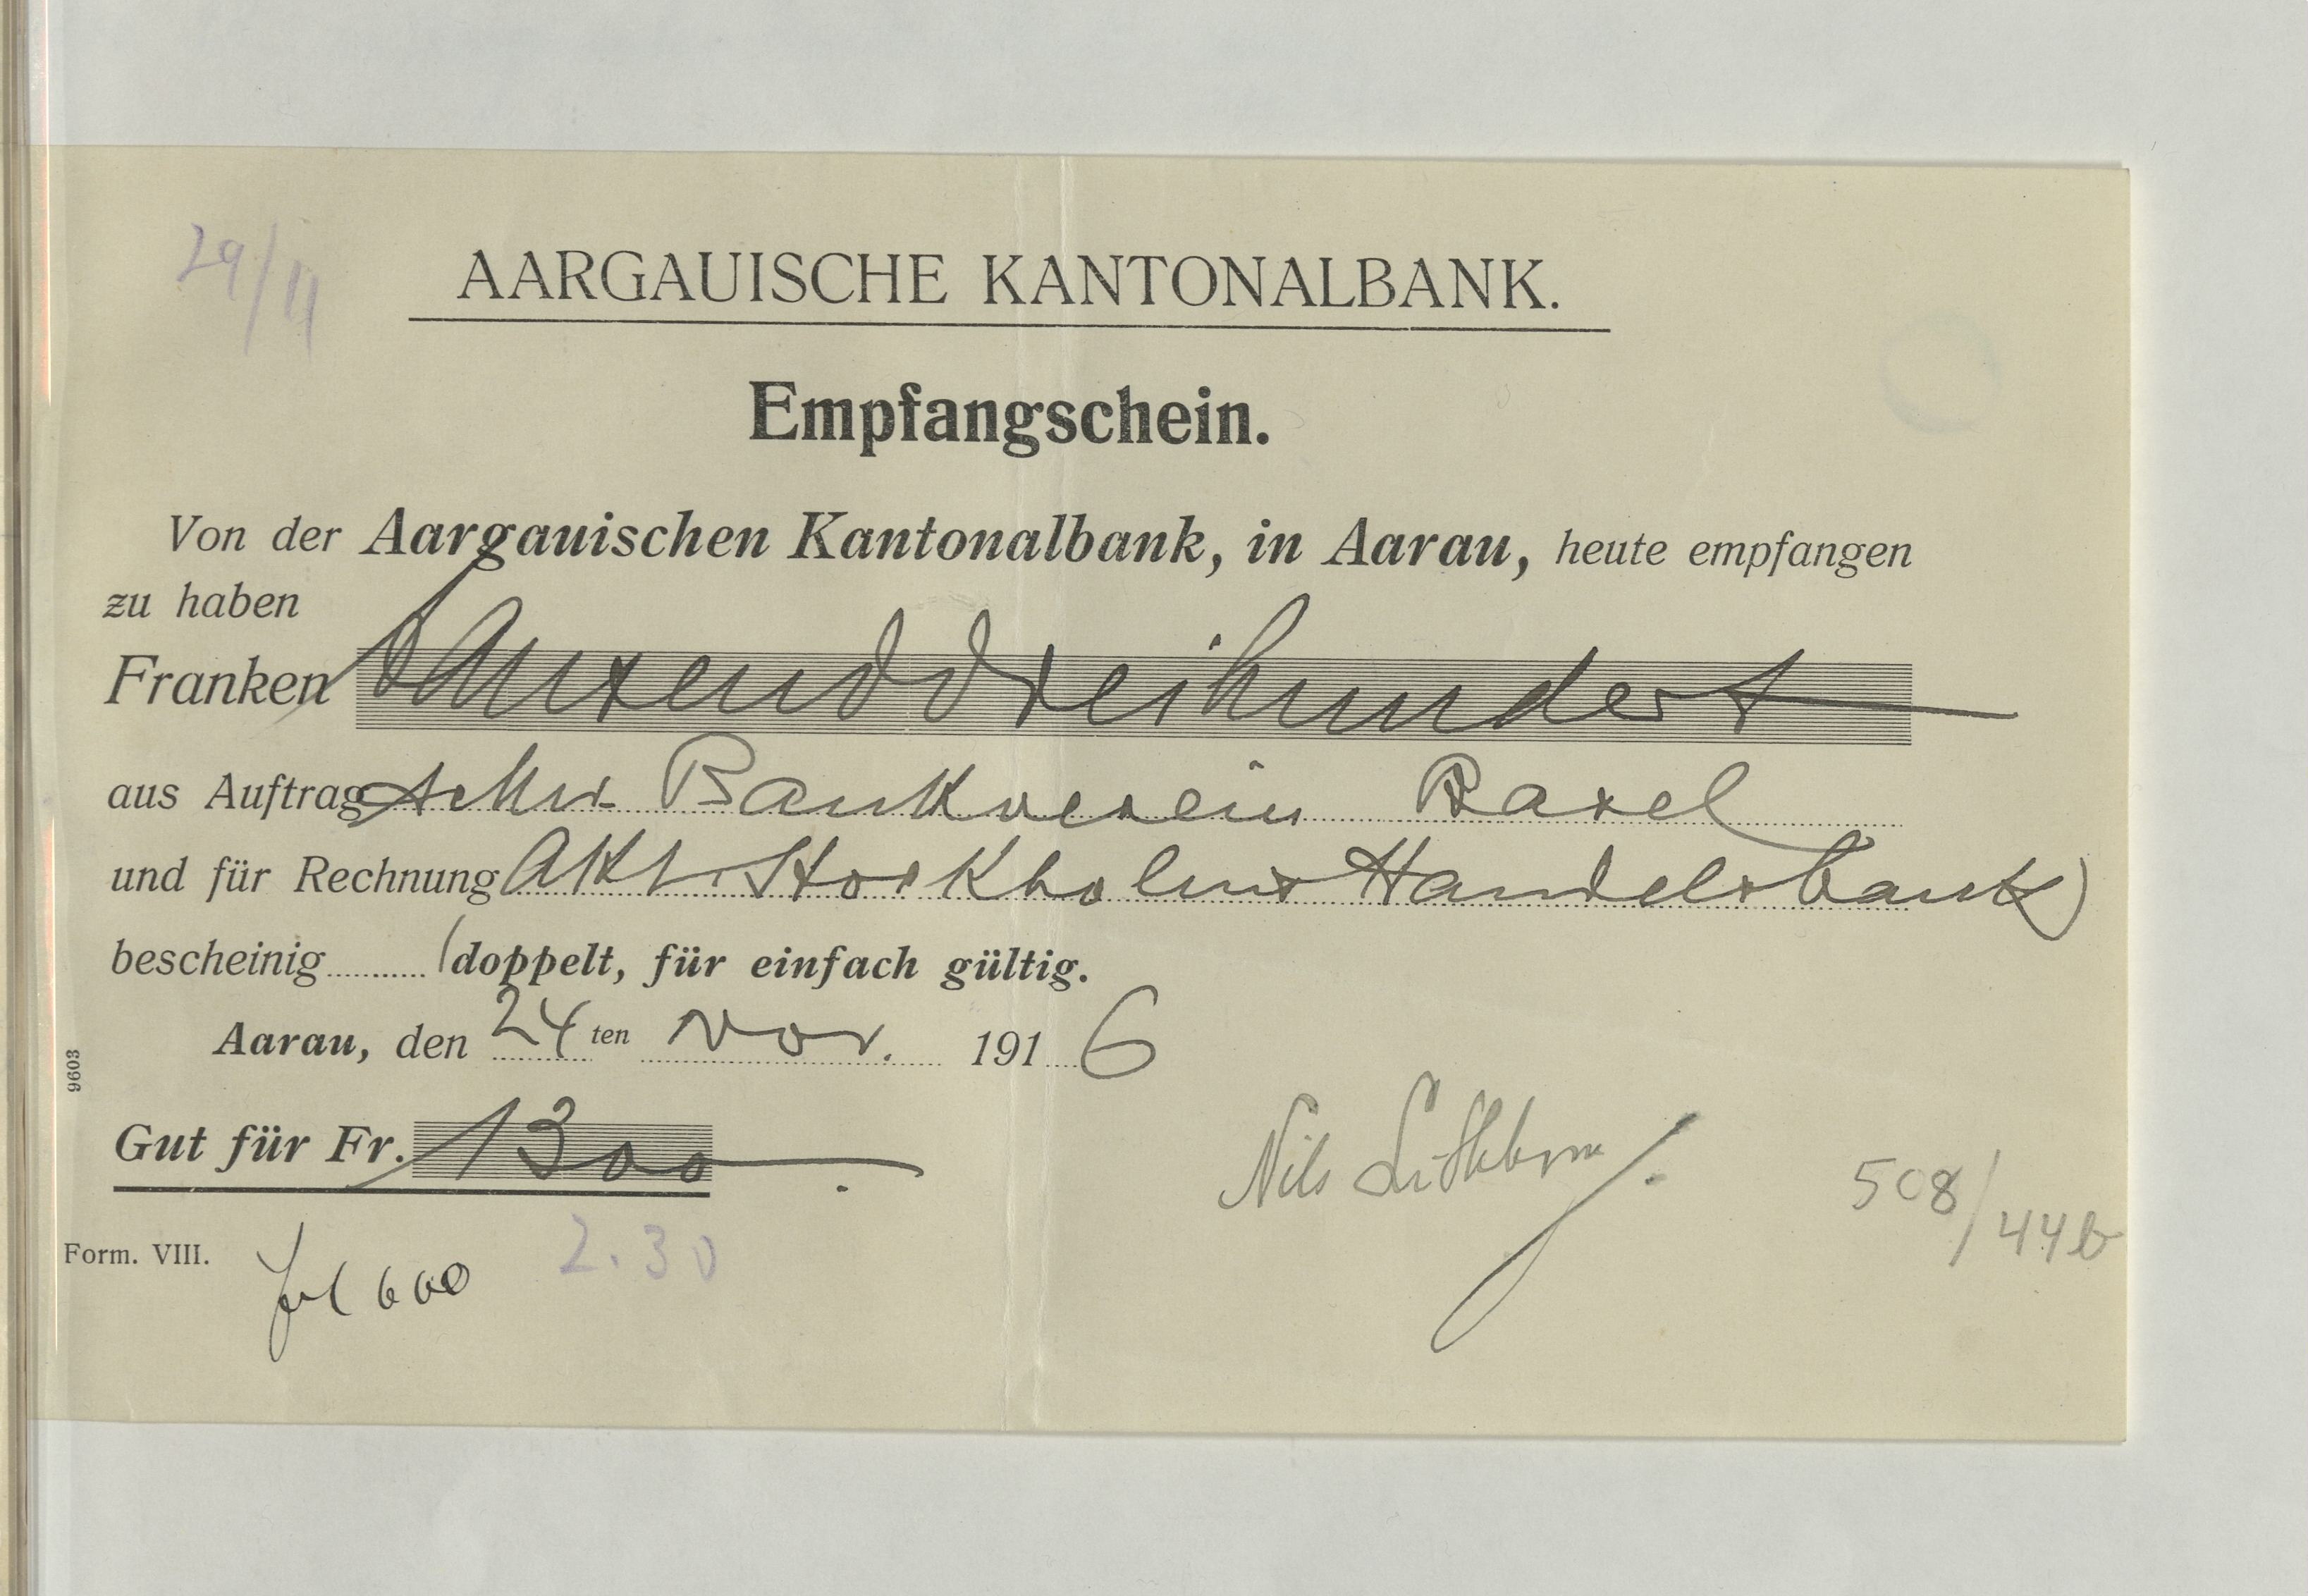 29/11
AARGAUISCHE KANTONALBANK.
Empfangschein.
Von der Aargauischen Kantonalbank, in Aarau, heute empfangen
zu haben
Franken Tausenddreihundert
aus Auftrag schw. Bankverein Basel
und für Rechnung Akt. Stockholms Handelsbank
bescheinig (doppelt, für einfach gültig.
Aarau, den 24 ten Nov. 1916
9603
Gut für Fr. 1300
Nils
508/44b
Form. VIII.
600
2.30